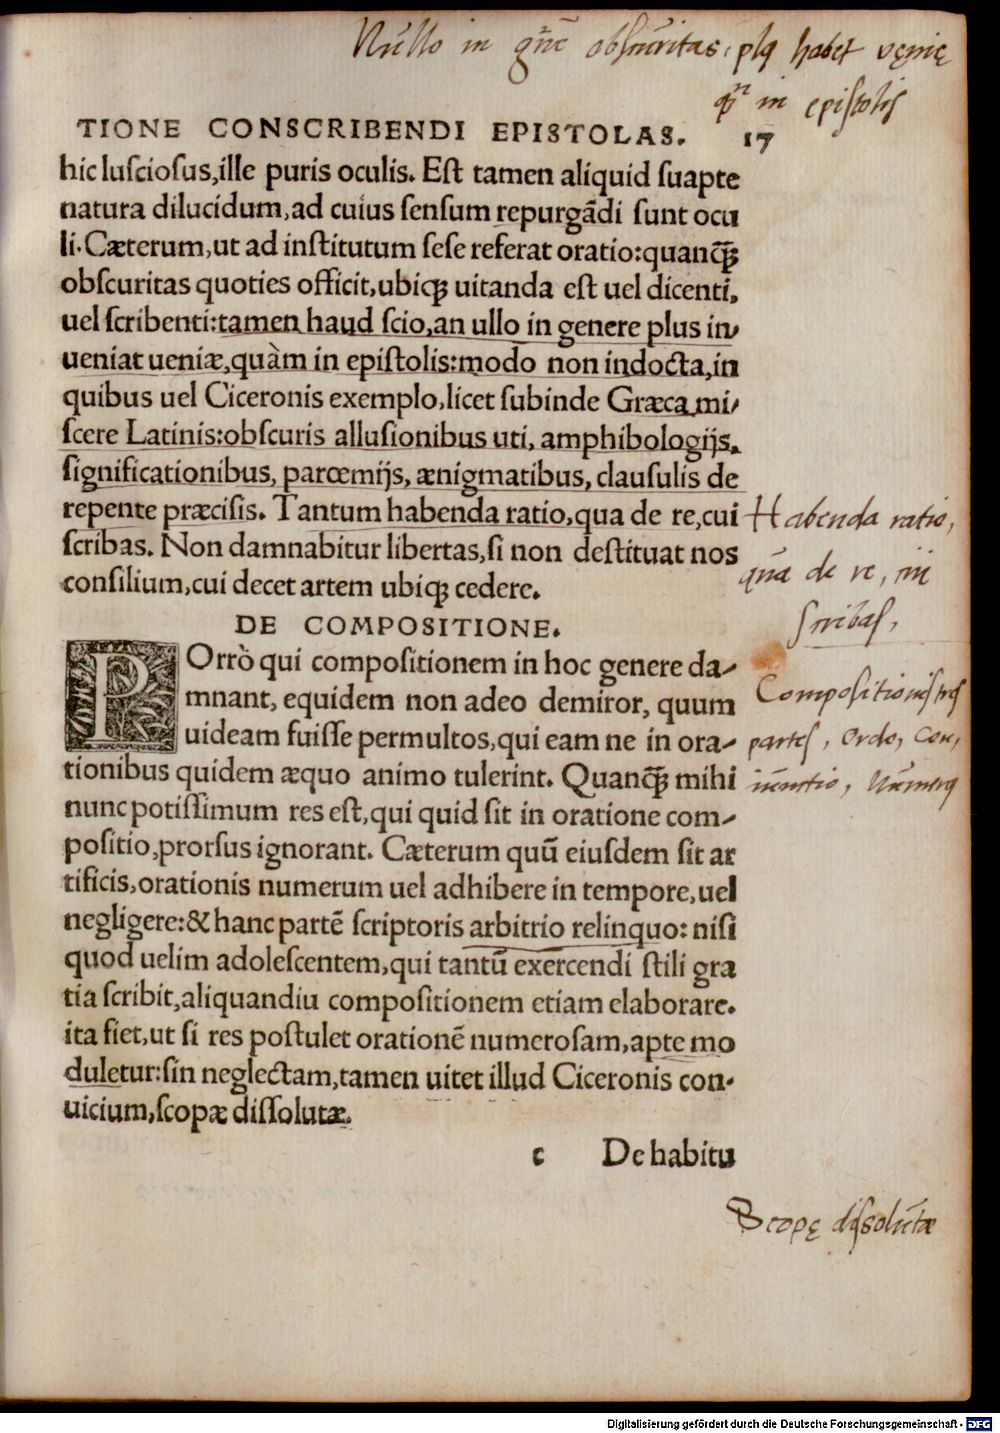 Nullo in gñe obscuritas, plꝰ habet venię
q̃ in epistolis
TIONE CONSCRIBENDI EPISTOLAS. 17
hic lusciosus,ille puris oculis. Est tamen aliquid suapte
natura dilucidum,ad cuius sensum repurgãdi sunt ocu
li. Cæterum,ut ad institutum sese referat oratio:quanꝗ̃
obscuritas quoties officit,ubiqꝫ uitanda est uel dicenti,
uel scribenti:tamen haud scio,an ullo in genere plus in-
ueniat ueniæ,quàm in epistolis:modo non indocta,in
quibus uel Ciceronis exemplo,licet subinde Græca mi-
scere Latinis:obscuris allusionibus uti, amphibologijs,
significationibus, parœmijs, ænigmatibus, clausulis de
repente præcisis. Tantum habenda ratio,qua de re,cui
scribas. Non damnabitur libertas,si non destituat nos
consilium,cui decet artem ubiqꝫ cedere.
Habenda ratio,
qua de re, cui
scribas,
DE COMPOSITIONE.
POrrò qui compositionem in hoc genere da-
mnant, equidem non adeo demiror, quum
uideam fuisse permultos,qui eam ne in ora-
tionibus quidem æquo animo tulerint. Quanꝗ̃ mihi
nunc potissimum res est,qui quid sit in oratione com-
positio,prorsus ignorant. Cæterum quũ eiusdem sit ar
tificis,orationis numerum uel adhibere in tempore,uel
negligere:& hanc partẽ scriptoris arbitrio relinquo: nisi
quod uelim adolescentem,qui tantũ exercendi stili gra
tia scribit,aliquandiu compositionem etiam elaborare.
ita fiet,ut si res postulet orationẽ numerosam,apte mo
duletur:sin neglectam,tamen uitet illud Ciceronis con-
uicium,scopæ dissolutæ.
Compositionis tres
partes, Ordo, Con,
iunctio, Numerꝰ
c De habitu
Scopę dissolutæ
Digitalisierung gefördert durch die Deutsche Forschungsgemeinschaft - DFG